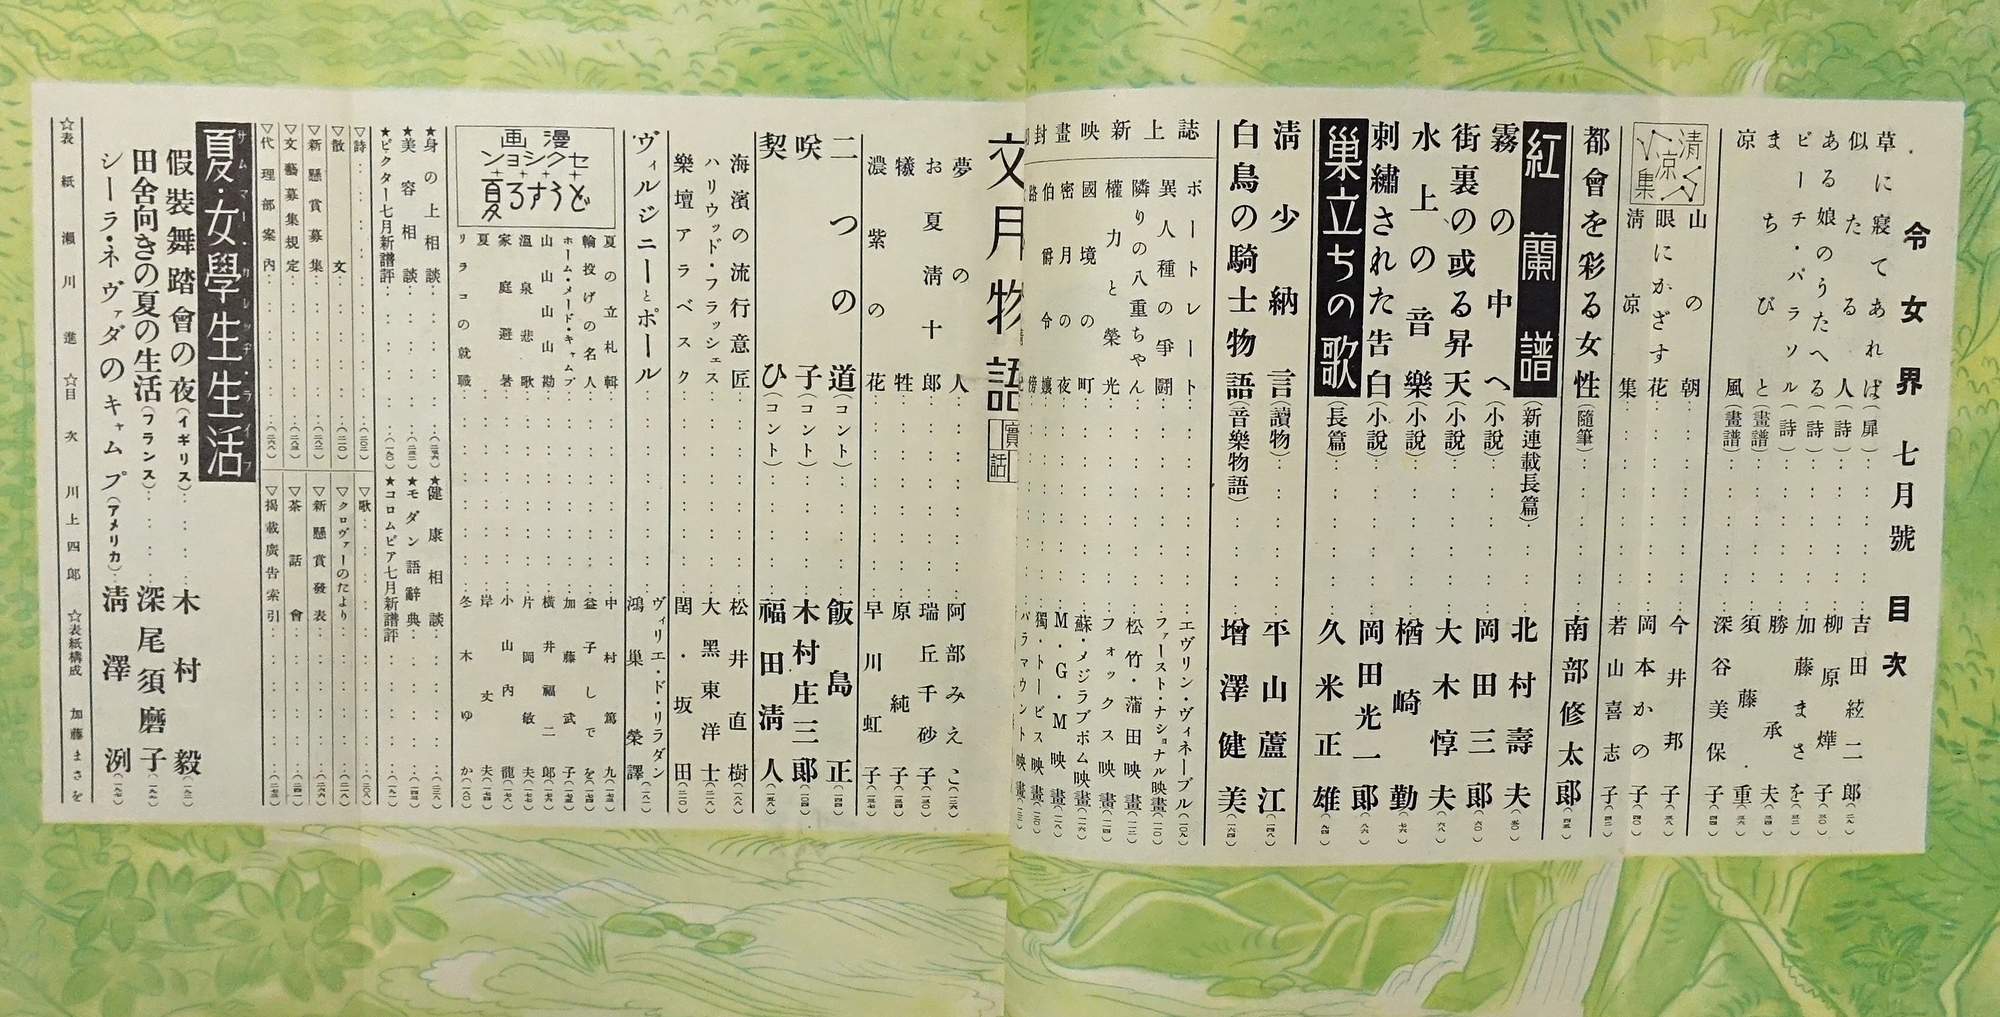 令女界 七月號 目次
草に寢てあれば(扉)……吉田絃二郎
似たる人(詩)……柳原燁子
ある娘のうたへる(詩)……加藤まさを
ビーチ・パラソル(詩)……勝承夫
まちびと(畫譜)……須藤重
凉風(畫譜)……深谷美保子
清凉集
山の朝……今井邦子
眼にかざす花……岡本かの子
淸凉集……若山喜志子
都會を彩る女性(隨筆)……南部修太郎
紅蘭譜(新連載長篇)……北村壽夫
霧の中へ(小說)……岡田三郎
街裏の或る昇天(小說)……大木惇夫
水上の音樂(小說)……楢崎勤
刺繡された告白(小說)……岡田光一郎
巢立ちの歌(長篇)……久米正雄
淸少納言(讀物)……平山蘆江
白鳥の騎士物語(音樂物語)……增澤健美
誌上新映畫封
ポートレート……エヴリン・ヴィネーブル
異人種の爭鬪……ファースト・ナショナル映畫
隣りの八重ちゃん……松竹・蒲田映畫
權力と榮光……フォックス映畫
國境の町……蘇・メジラブポム映畫
密月の夜……M・G・M映畫
伯爵令孃……獨・トービス映畫
パラマウント映畫
文月物語
實話
夢の人……阿部みえこ
お夏淸十郎……瑞丘千砂子
犧牲……原純子
濃紫の花……早川虹子
二つの道(コント)……飯島正
咲子(コント)……木村庄三郎
契ひ(コント)……福田淸人
海濱の流行意匠……松井直樹
ハリウッド・フラッシェス……大黑東洋士
樂壇アラベスク……閏・坂田
ヴィルジニーとポール……ヴィリエ・ド・リラダン
鴻巢榮譯
漫畫
セクション
どうする夏
夏の立札輯……中村篤九
輪投げの名人……益子しでを
ホーム・メード・キャムプ……加藤武子
山山山山勘……橫井福二郎
溫泉悲歌……片岡敏夫
家庭避暑……小山內龍
夏……岸丈夫
リラコの就職……冬木ゆか
★身の上相談
★健康相談
★美容相談
★モダン語辭典
★ビクター七月新譜評
★コロムビア七月新譜評
▽詩
▽歌
▽散文
▽クロヴァーのたより
▽新懸賞募集
▽新懸賞發表
▽文藝募集規定
▽茶話會
▽代理部案內
▽揭載廣告索引
夏・女學生生活
サムマー・カレッヂ・ライフ
假裝舞踏會の夜(イギリス)……木村毅
田舍向きの夏の生活(フランス)……深尾須磨子
シーラ・ネヴァダのキャムプ(アメリカ)……淸澤洌
☆表紙 瀨川進 ☆目次 川上四郎 ☆表紙構成 加藤まさを